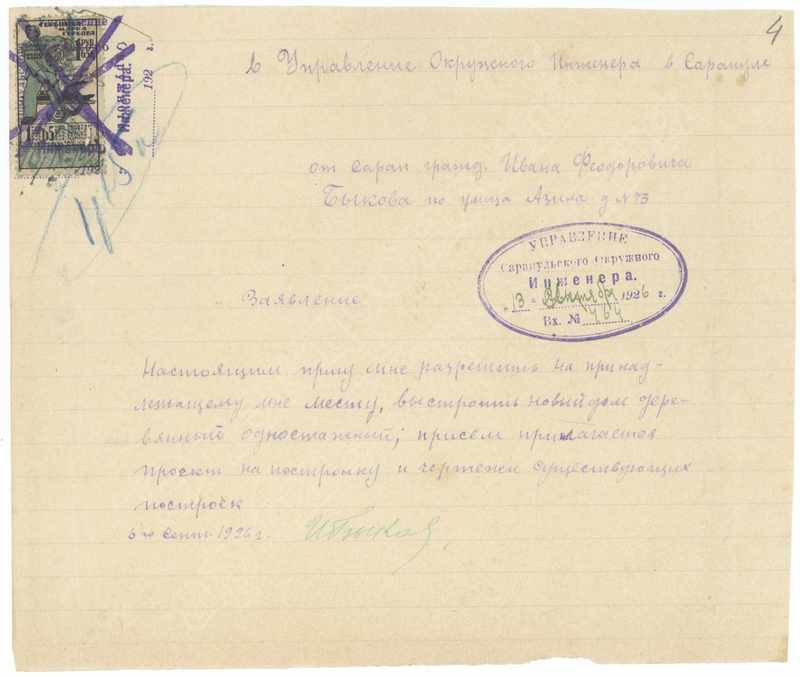 4
в Управление Окружного Инженера в Сарапуле
от Сарап гражд. Ивана Феодоровича
Быкова по улица Азина д №
УПРАВЛЕНИЕ
Сарапульского Окружного
Инженера.
"13" 1926 г.
Вх. № 464
Заявление
Настоящим прошу мне разрешить на принад-
лежащему мне месту, выстроить новый дом дере-
вянный одноэтажный; присем прилагается
проект на постройку и чертежи существующих
построек
6го Сент. 1926 г. И Быков
Инженера.
192 г.